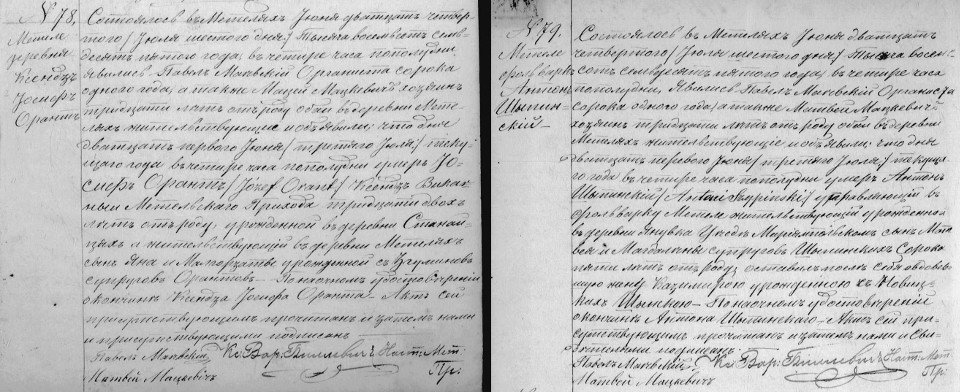 N 78,
Метеле
деревня
Ксендзъ
Іосифъ
Орантъ
Состоялось въ Метеляхъ Іюня дватцать четвер-
того / Іюля шестого дня / тысяча восемьсотъ семь-
десятъ пятого года, въ четыре часа пополудни
явились Павелъ Маковскій Органиста сорока
одного года, а также Мацей Мацкевичъ хозяинъ
тридцати лѣтъ отъ роду оба въ деревни Мете-
ляхъ жительствующие и объявили, что дня
дватцать первого Іюня / третяго Іюля / теку-
щаго года въ четыре часа пополудни умеръ Іо-
сифъ Орантъ / Józef Orant / Ксендзъ Викар-
ный Метельскаго Прихода тридцати двохъ
лѣтъ отъ роду, урожденной въ деревни
а жительствующій въ деревни Метеляхъ
сынъ Яна и Малгоржаты урожденной съ
супруговъ Орантовъ – По насточномъ удостовѣреніи
о кончинѣ Ксендза Іосифа Оранта – Актъ сей
присутствующимъ прочитанъ и записъ нами
и присутствующими подписанъ
Павелъ Маковскій Кс. Наст. Мет:
Матвѣй Мацкевичъ Пр:
N 79.
Метеле
фольваркъ
Антонъ
Шыпин-
скій –
Состоялось въ Метеляхъ Іюня дватцать
четвертого / Іюля шестого дня / тысяча восем-
сотъ семьдесятъ пятого года, въ четыре часа
пополудни, явились Павелъ Маковскій Органиста
сорока одного года, а также Матвей Мацкевичъ
хозяинъ тридцати лѣтъ отъ роду оба въ деревни
Метеляхъ жительствующие и объявили, что дня
дватцать первого Іюня / третяго Іюля / текущаго
года въ четыре часа пополудни умеръ Антонъ
Шыпинскій / Antoni Szypiński / управляющій въ
фольварку Метеле жительствующій урожденной
въ деревни Янувка сынъ Мат-
вея и Магдалены супруговъ Шыпинскихъ Сорока
пяти лѣтъ отъ роду, оставилъ послѣ себя овдовѣв-
шую жену Казимиру урожденную съ Новиц-
кихъ – По насточномъ удостовѣреніи
о кончинѣ Антона Шыпинскаго – Актъ сей при-
сутствующимъ прочитанъ и записъ нами и сви-
дѣтелями подписанъ –
Павелъ Маковскій Кс. Наст. Мет:
Матвѣй Мацкевичъ Пр: